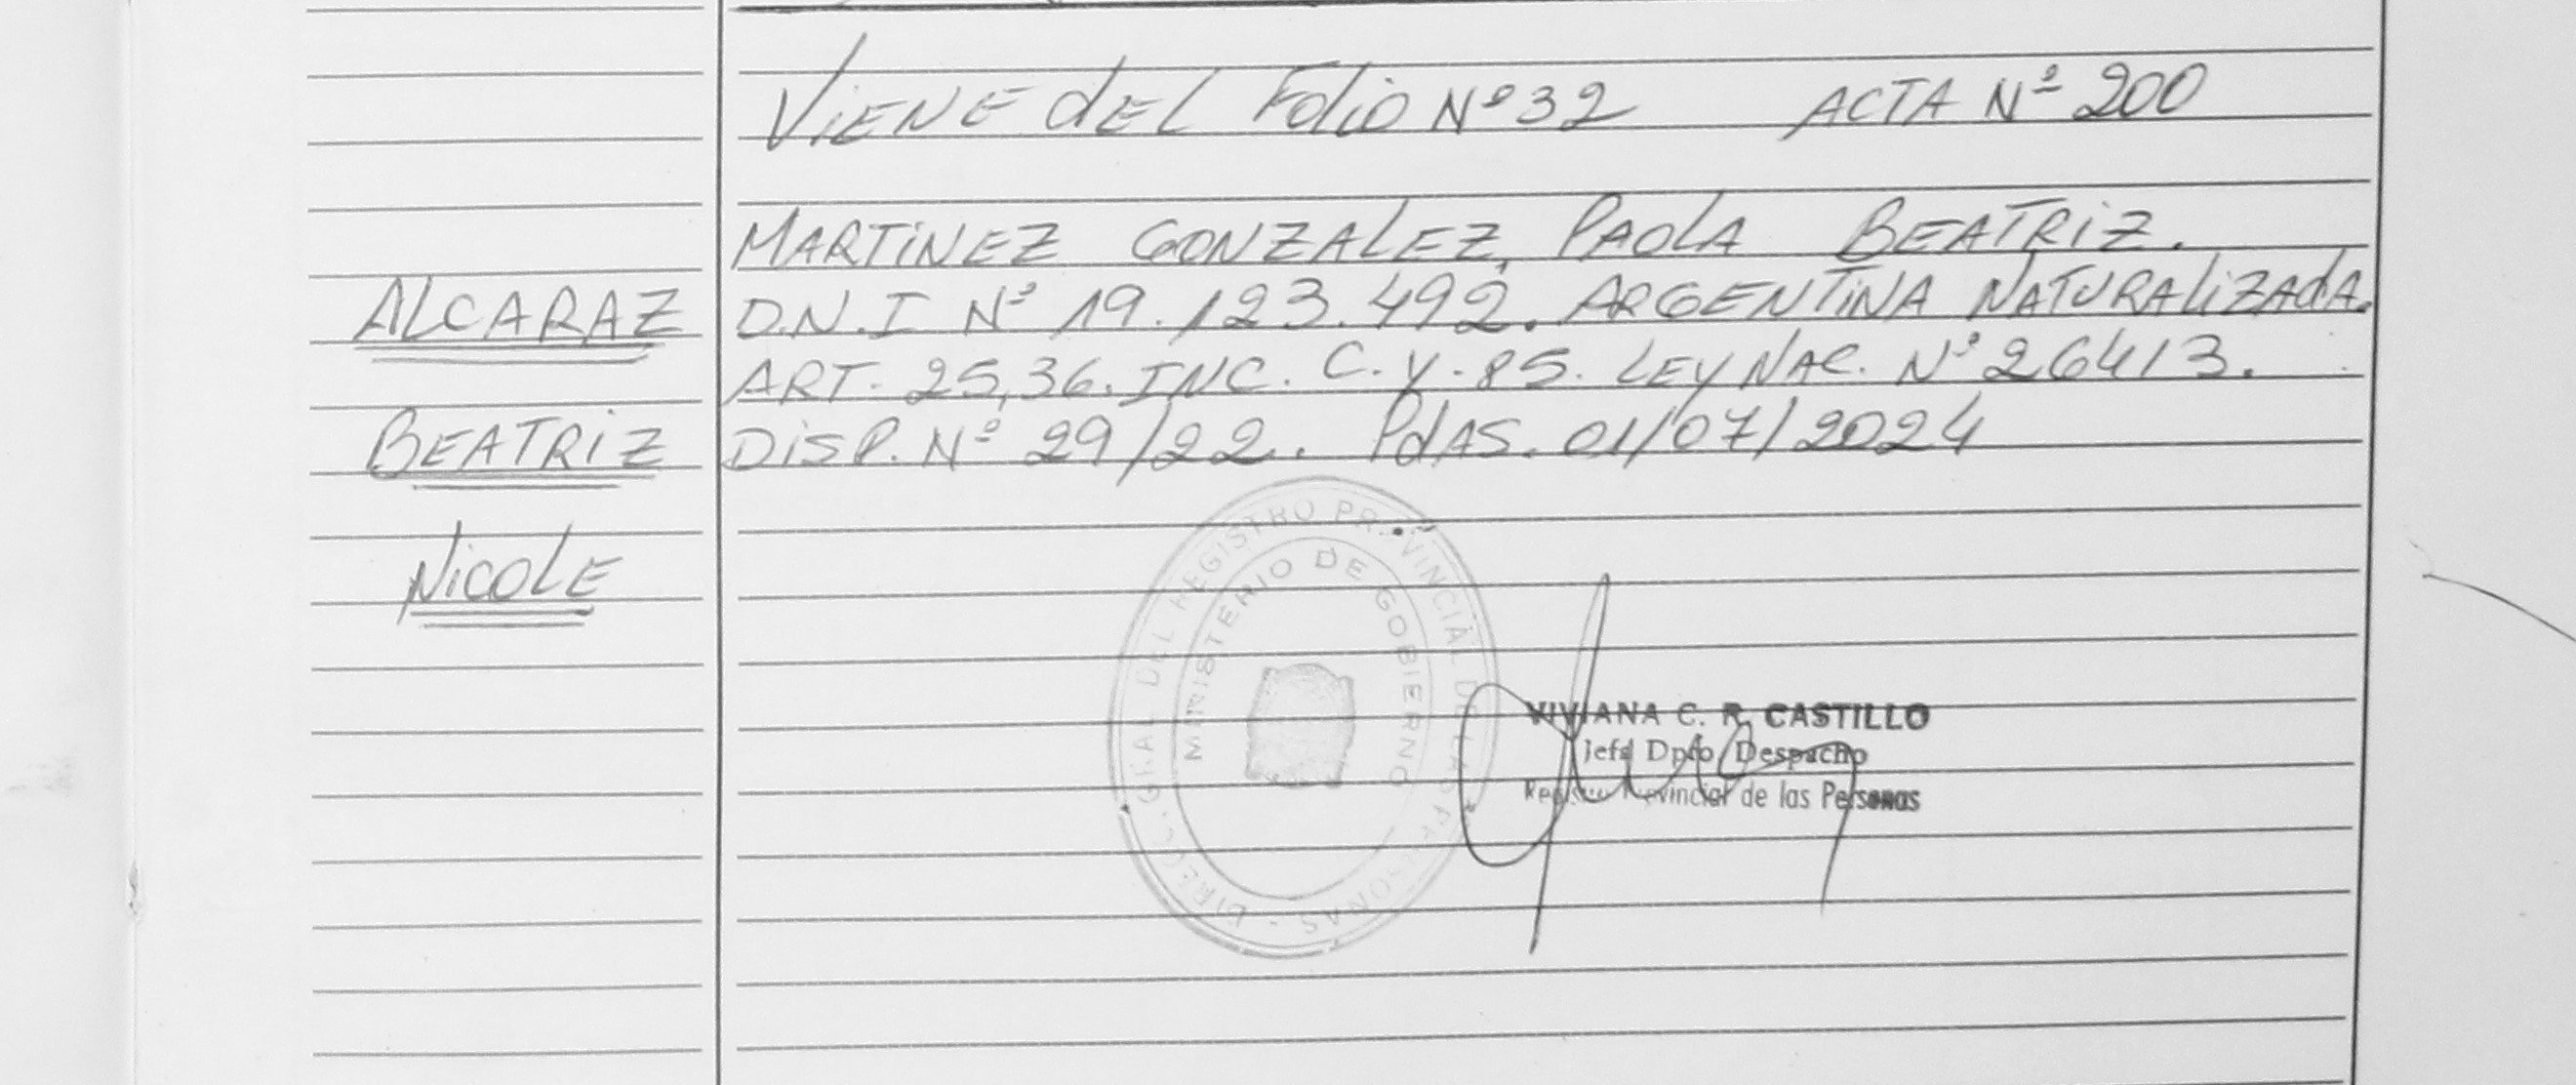 VIENE dEL FOLIO Nº 32 ACTA Nº 200
MARTINEZ GONZALEZ, PAOLA BEATRIZ.
ALCARAZ
D.N.I Nº 19.123.492. ARGENTINA NATURALIZADA.
ART. 25,36. INC. C. Y. 85. LEY NAC. Nº 26413.
BEATRIZ
DISP. Nº 29/22. PdAS. 01/07/2024
NICOLE
DIRECC. GRAL DEL REGISTRO PROVINCIAL DE LAS PERSONAS -
MINISTERIO DE GOBIERNO
VIVIANA C. R. CASTILLO
Jefa Dpto Despacho
Registro Provincial de las Personas